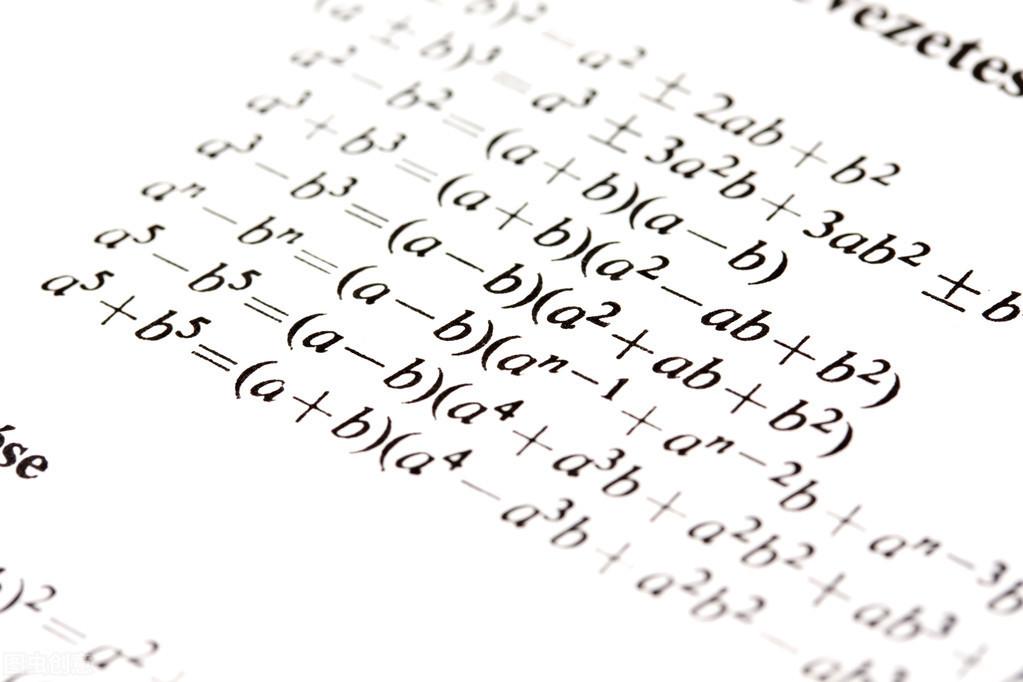 vezetes
(a ± b)² = a² ± 2ab + b²
(a ± b)³ = a³ ± 3a²b + 3ab² ± b
a² − b² = (a + b)(a − b)
a³ + b³ = (a + b)(a² − ab + b²)
a³ − b³ = (a − b)(a² + ab + b²)
aⁿ − bⁿ = (a − b)(aⁿ⁻¹ + aⁿ⁻²b + aⁿ⁻³b
a⁵ − b⁵ = (a − b)(a⁴ + a³b + a²b² + ab³ +
a⁵ + b⁵ = (a + b)(a⁴ − a³b + a²b² − ab³
ése
)² = a²
图虫创意